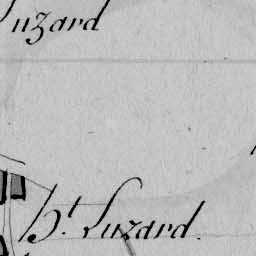 Luzard
h.t Luzard.